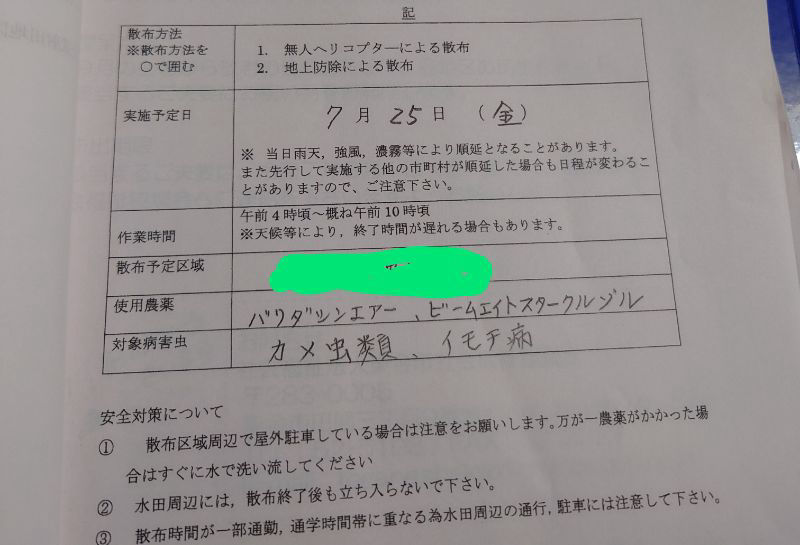 記
散布方法
※散布方法を
〇で囲む
1. 無人ヘリコプターによる散布
2. 地上防除による散布
実施予定日
7月25日（金）
※ 当日雨天，強風，濃霧等により順延となることがあります。
また先行して実施する他の市町村が順延した場合も日程が変わるこ
とがありますので、ご注意下さい。
作業時間
午前4時頃～概ね午前10時頃
※天候等により，終了時間が遅れる場合もあります。
散布予定区域
使用農薬
バリダシンエアー、ビームエイトスタークルゾル
対象病害虫
カメ虫類、イモチ病
安全対策について
① 散布区域周辺で屋外駐車している場合は注意をお願いします。万が一農薬がかかった場
合はすぐに水で洗い流してください
② 水田周辺には，散布終了後も立ち入らないで下さい。
③ 散布時間が一部通勤，通学時間帯に重なる為水田周辺の通行，駐車には注意して下さい。